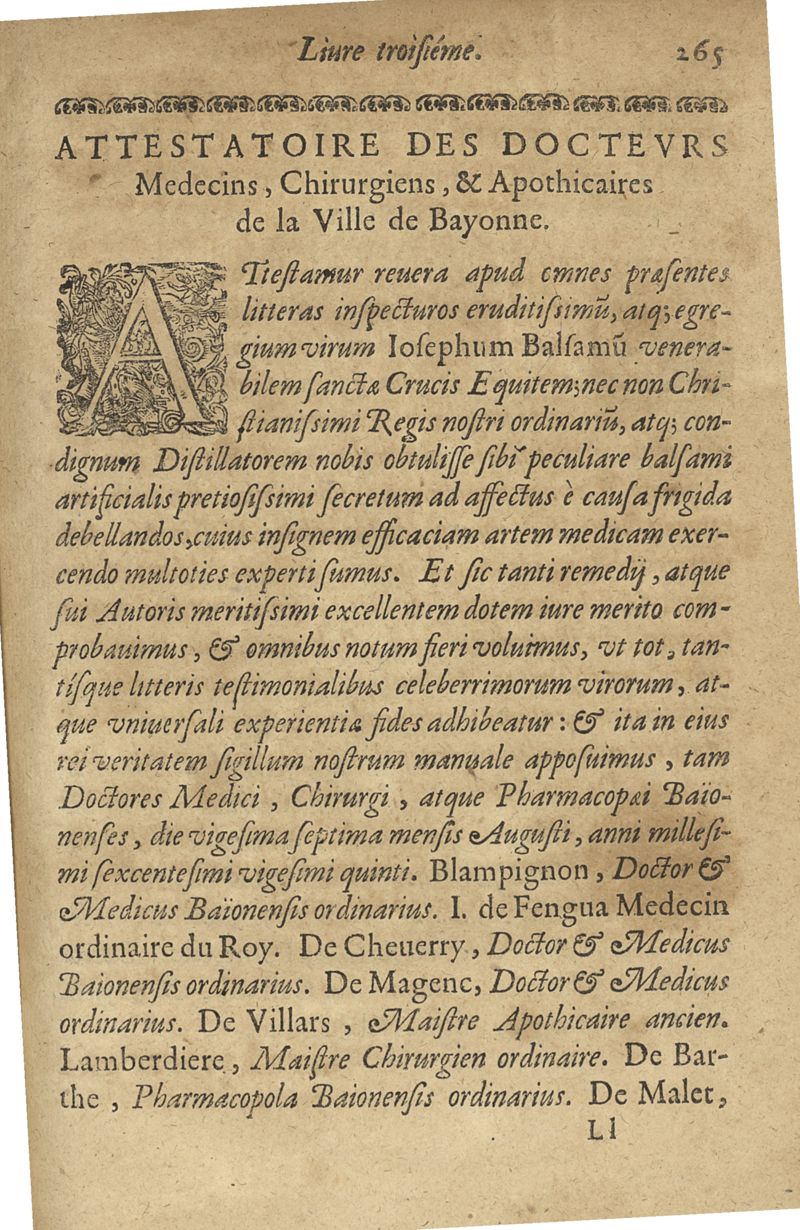 Liure troisiéme. 265
ATTESTATOIRE DES DOCTEVRS
Medecins, Chirurgiens, & Apothicaires
de la Ville de Bayonne.
ATtestamur reuera apud omnes præsentes
litteras inspecturos eruditissimū, atq; egre-
gium virum Iosephum Balsamū venera-
bilem sanctæ Crucis Equitem; nec non Chri-
stianissimi Regis nostri ordinariū, atq; con-
dignum Distillatorem nobis obtulisse sibi peculiare balsami
artificialis pretiosissimi secretum ad affectus è causa frigida
debellandos, cuius insignem efficaciam artem medicam exer-
cendo multoties experti sumus. Et sic tanti remedij, atque
sui Autoris meritissimi excellentem dotem iure merito com-
probauimus, & omnibus notum fieri voluimus, vt tot, tan-
tísque litteris testimonialibus celeberrimorum virorum, at-
que vniuersali experientiæ fides adhibeatur : & ita in eius
rei veritatem sigillum nostrum manuale apposuimus, tam
Doctores Medici, Chirurgi, atque Pharmacopæi Baïo-
nenses, die vigesima septima mensis Augusti, anni millesi-
mi sexcentesimi vigesimi quinti. Blampignon, Doctor &
Medicus Baïonensis ordinarius. I. de Fengua Medecin
ordinaire du Roy. De Cheuerry, Doctor & Medicus
Baionensis ordinarius. De Magenc, Doctor & Medicus
ordinarius. De Villars, Maistre Apothicaire ancien.
Lamberdiere, Maistre Chirurgien ordinaire. De Bar-
the, Pharmacopola Baionensis ordinarius. De Malet,
Ll